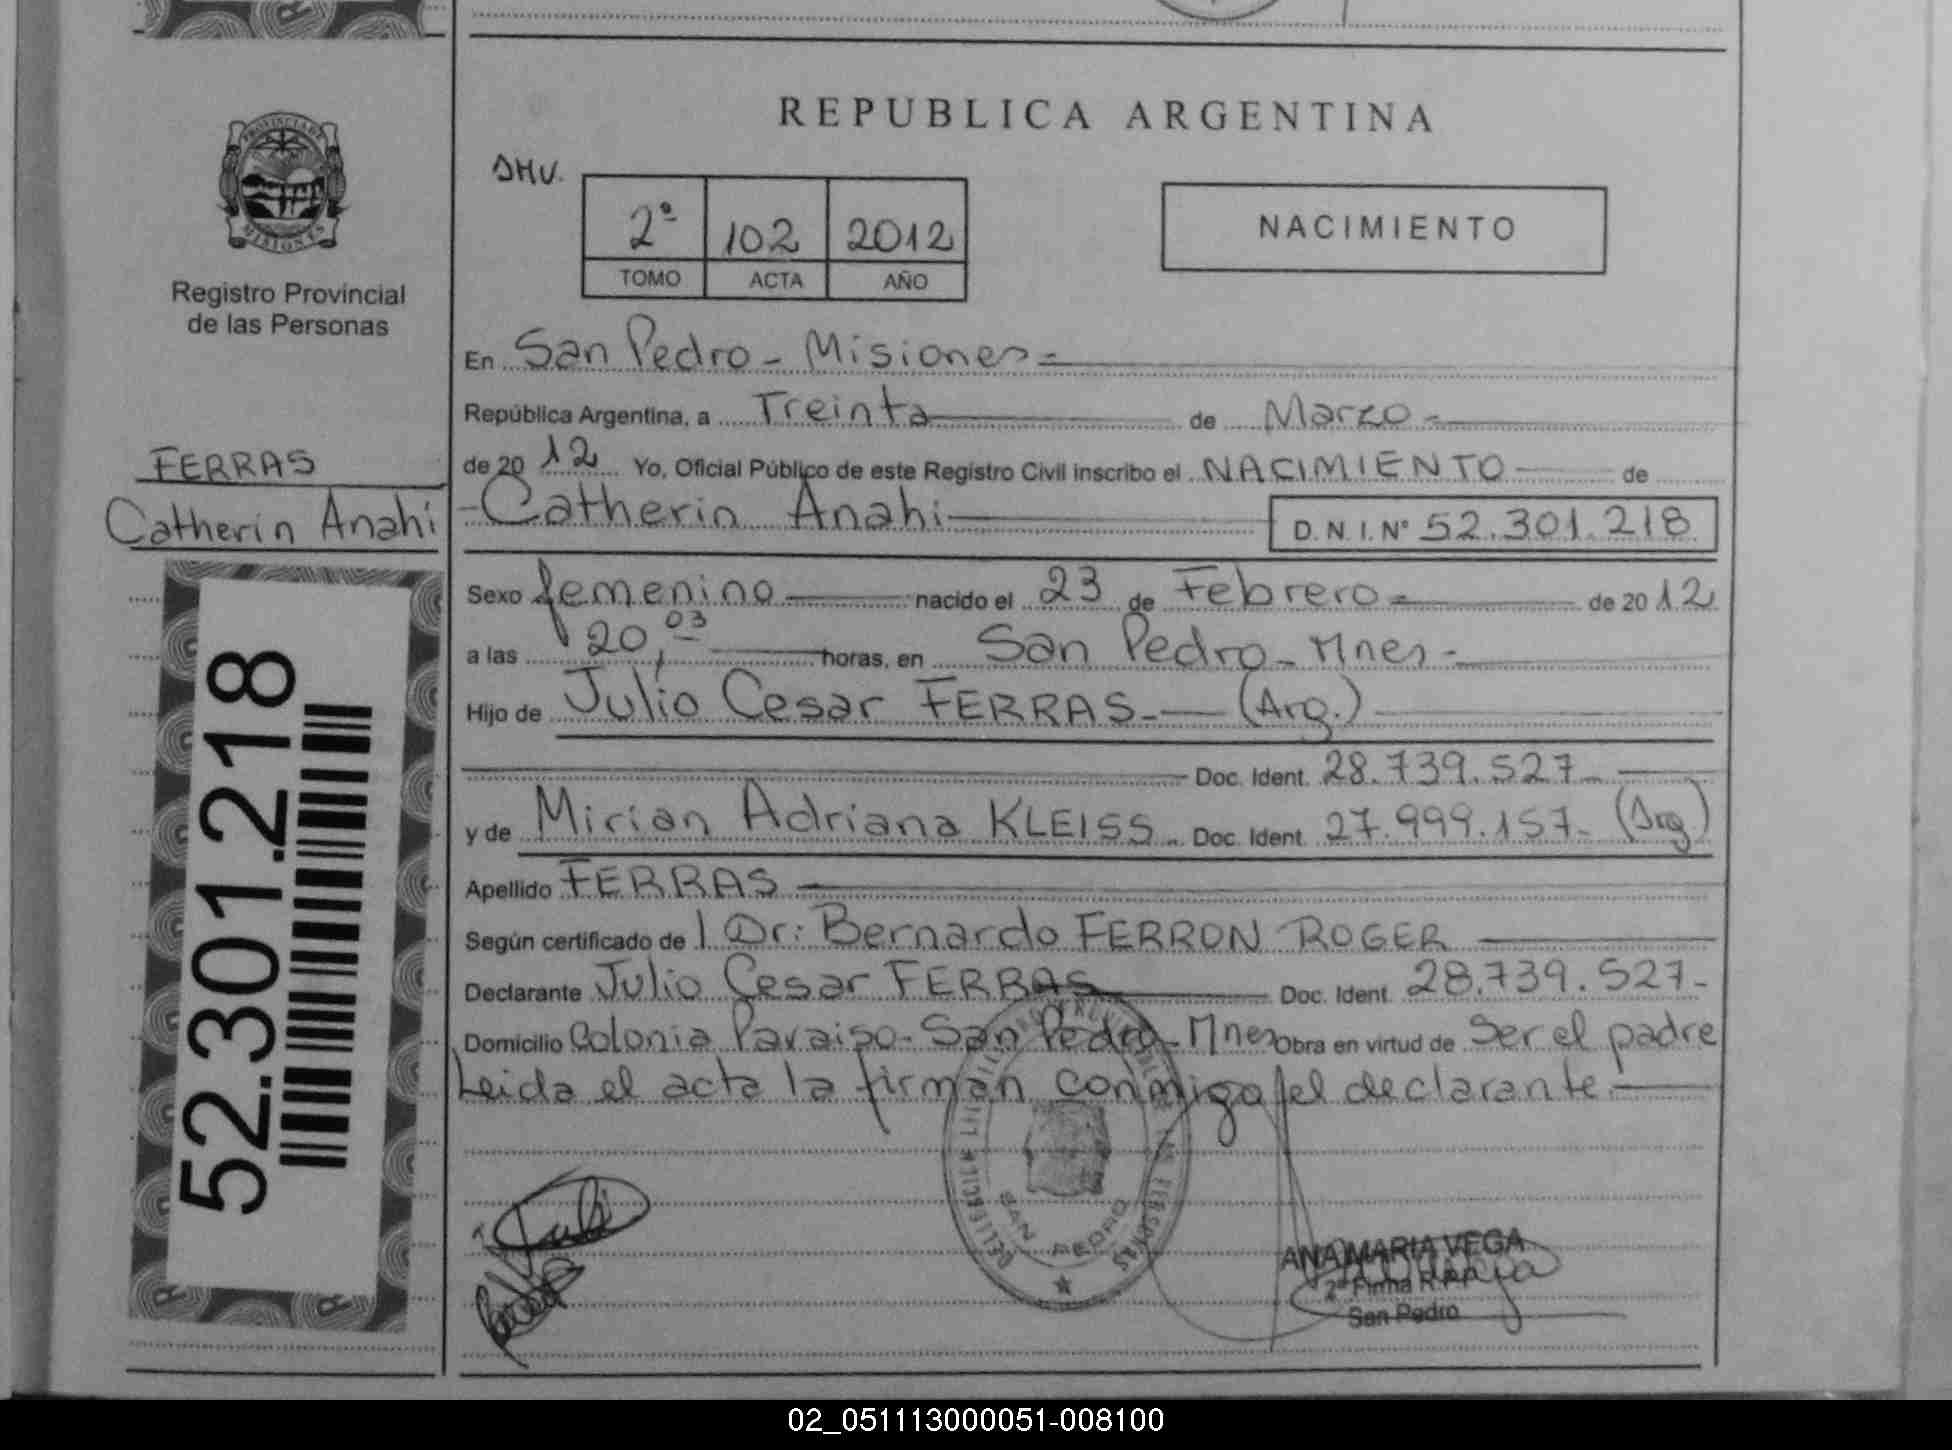 REPUBLICA ARGENTINA
PROVINCIA DE
MISIONES
Registro Provincial
de las Personas
SHV.
2º 102 2012
TOMO ACTA AÑO
NACIMIENTO
En San Pedro - Misiones =
República Argentina, a Treinta de Marzo -
de 20 12 Yo, Oficial Público de este Registro Civil inscribo el NACIMIENTO de
FERRAS
Catherin Anahi
- Catherin Anahi D.N.I.Nº 52.301.218
Sexo femenino nacido el 23 de Febrero = de 20 12
a las 20,03 horas, en San Pedro - Mnes -
Hijo de Julio Cesar FERRAS - (Arg.)
Doc. Ident. 28.739.527 -
y de Mirian Adriana KLEISS - Doc. Ident. 27.999.157 - (Arg.)
Apellido FERRAS
Según certificado de l Dr: Bernardo FERRON ROGER
Declarante Julio Cesar FERRAS Doc. Ident. 28.739.527 -
Domicilio Colonia Paraiso - San Pedro - Mnes Obra en virtud de Ser el padre
Leida el acta la firman conmigo el declarante -
52.301.218
SAN PEDRO
ANA MARIA VEGA
2ª Firma R.P.P.
San Pedro
02_051113000051-008100